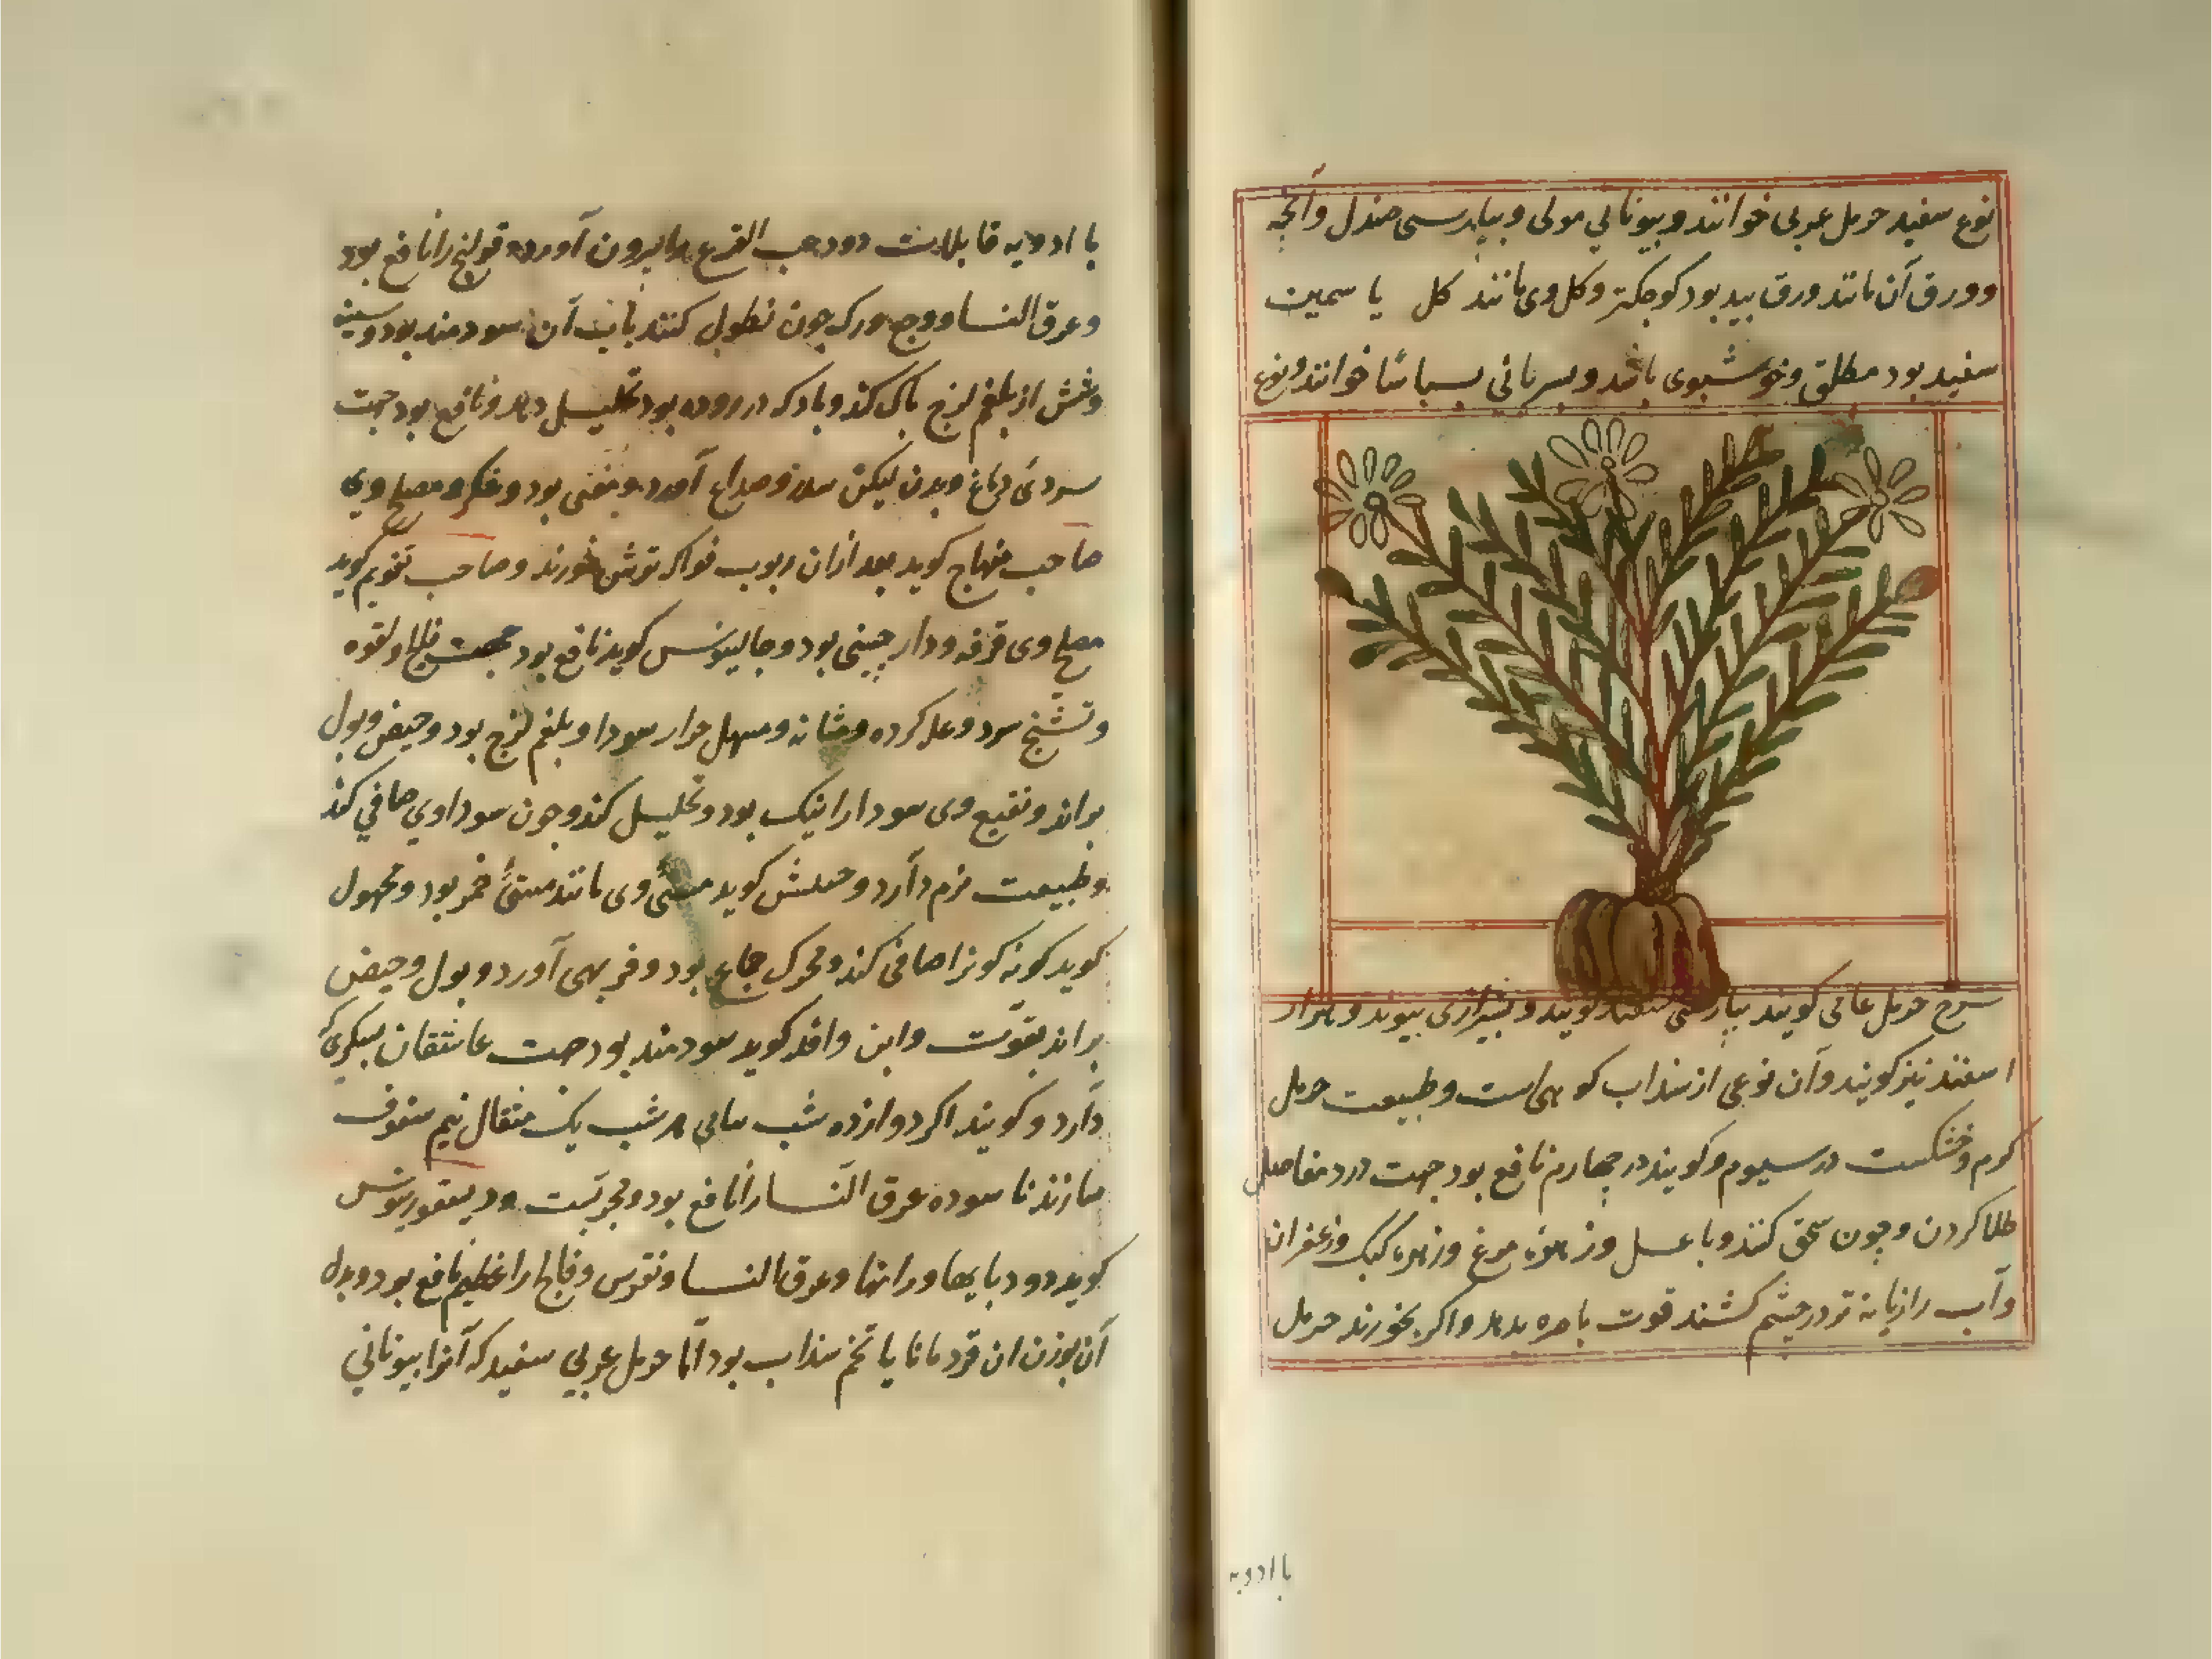 نوع سفید حرمل عربی خوانند و بیونانی مولی و بپارسی صندل وآنچه
وورق آن مانند ورق بید بود کوچکتر وکل وی مانند کل یا سمین
سفید بود مطلق وخوشبوی باشد و بسریانی بسباسا خوانند ونوع
سرخ حرمل عامی کویند بپارسی کویند و بشیرازی وهزار
اسفند نیز کویند وآن نوعی از سداب کوهی است وطبیعت حرمل
کرم وخشکست در سیوم وکویند در چهارم نافع بود جهت درد مفاصل
طلا کردن وچون سحق کنند وبا عسل وزهره مرغ وزهره کبک وزعفران
وآب رازیانه تر در چشم کشند قوت باصره بدهد واکر بخورند حرمل
با ادویه
با ادویه قابلات دود حب القرع را بیرون آورد وقولنج را نافع بود
وعرق النسا ووجع ورک چون نطول کنند بآب آن سودمند بود وسینه
وشش از بلغم لزج پاک کند وبادکه در روده بود تحلیل دهد ونافع بود جهت
سردی دماغ وبدن لیکن سدر وصداع آورد ومغثی بود ومصلح وی
صاحب منهاج کوید بعد از ان ربوب فواکه ترش خورند وصاحب تقویم کوید
مصلح وی قرفه ودارچینی بود وجالینوس کوید نافع بود جهت فالج ولقوه
وتشنج سرد وعلل کرده ومثانه ومسهل مرار سودا وبلغم لزج بود وحیض وبول
براند ونقیع وی سودا را نیک بود وتحلیل کند وخون سوداوی صافی کند
وطبیعت نرم دارد وحبیش کوید مستی وی مانند مستی خمر بود ومجهول
کوید کونه کونرا صافی کند ومحرک جماع بود وفربهی آورد وبول وحیض
براند بقوت وابن وافد کوید سودمند بود جهت عاشقان
دارد وکویند اکر دوازده شب هر شب یک مثقال نیم سفوف
سازند ناسوده عرق النسا را نافع بود ومجربست ودیسقوریدوس
کوید درد پایها ورانها وعرق النسا ونقرس وفالج را عظیم نافع بود وبدل
آن بوزن ان قردمانا یا تخم سداب بود اما حرمل عربی سفید که آنرا بیونانی